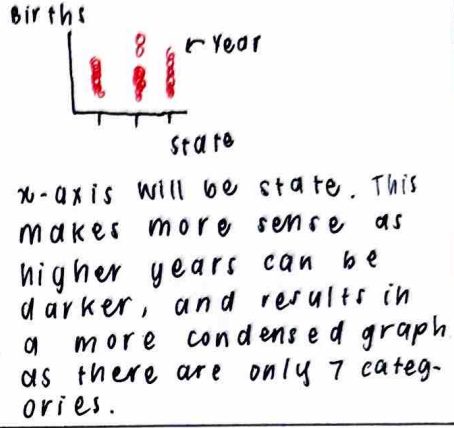 Births
Year
state
x-axis will be state. This
makes more sense as
higher years can be
darker, and results in
a more condensed graph
as there are only 7 categ-
ories.